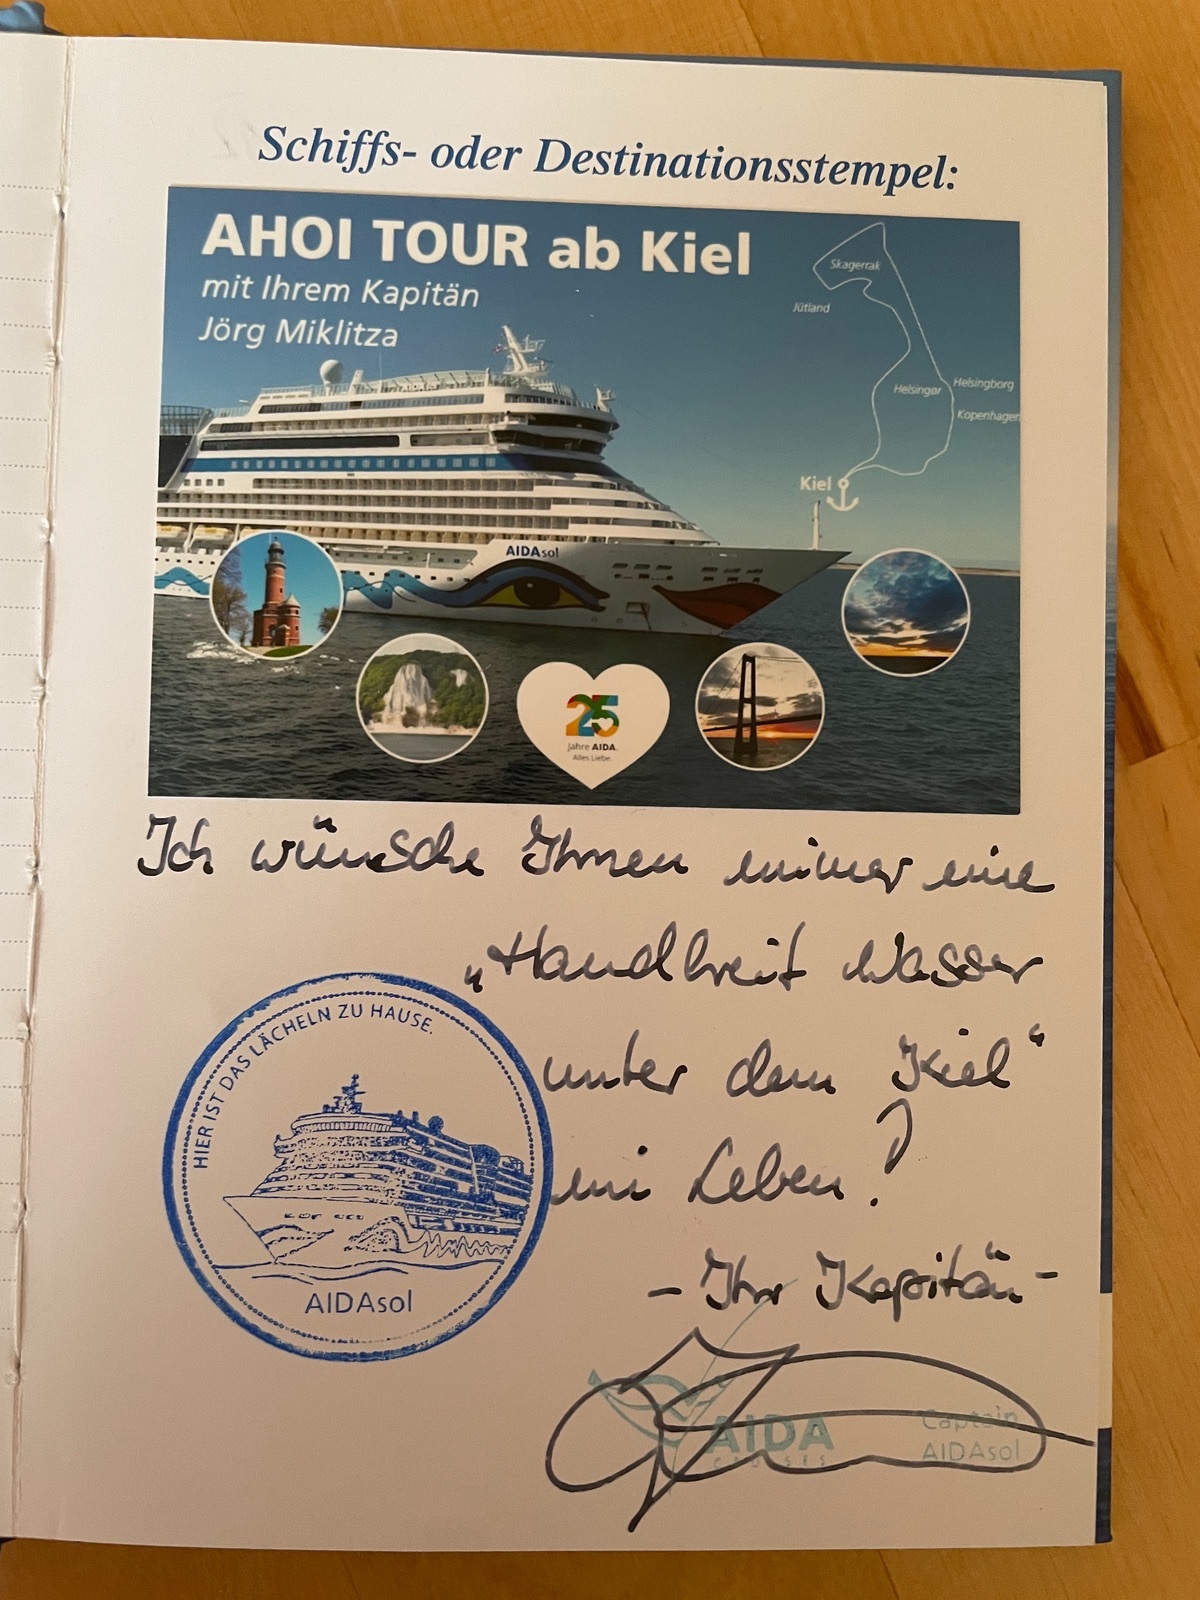 Schiffs- oder Destinationsstempel:
AHOI TOUR ab Kiel
mit Ihrem Kapitän
Jörg Miklitza
Skagerrak
Jütland
Helsingør
Helsingborg
Kopenhagen
Kiel
AIDAsol
25
Jahre AIDA.
Alles Liebe.
Ich wünsche Ihnen immer eine
„Handbreit Wasser
unter dem Kiel“
im Leben!
HIER IST DAS LÄCHELN ZU HAUSE.
AIDAsol
- Ihr Kapitän -
AIDA
CRUISES
Captain
AIDAsol